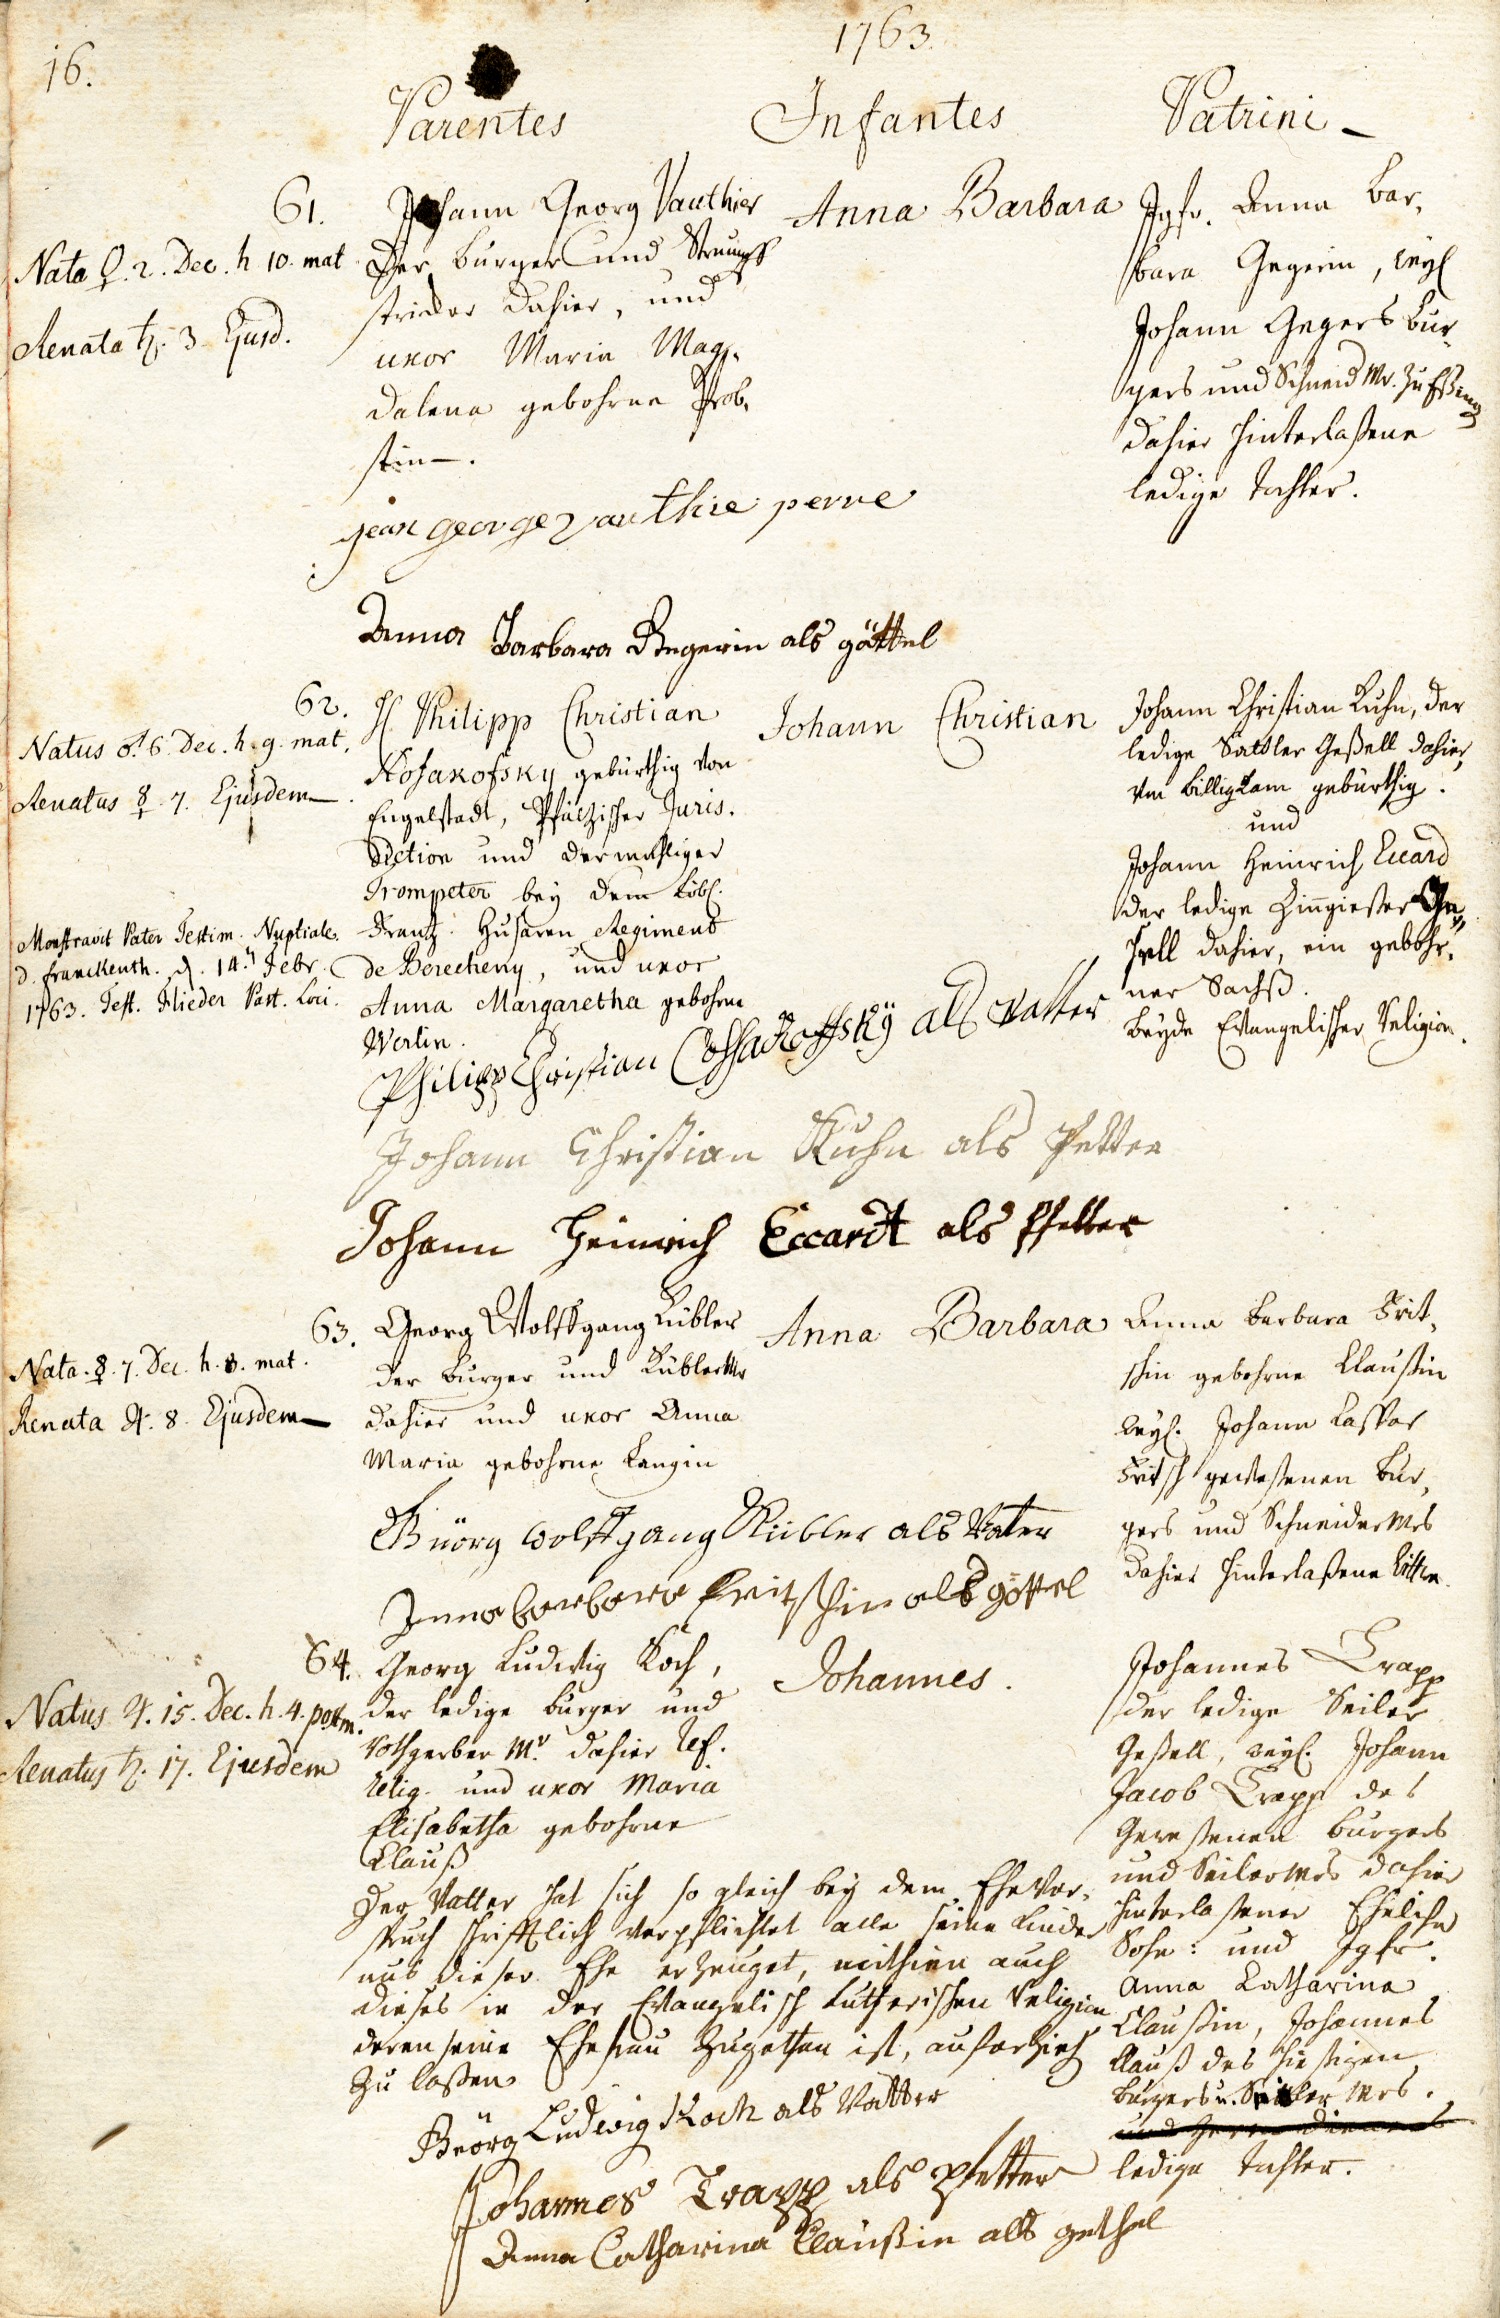 16.
1763.
Parentes Infantes Patrini
61.
Nata ♀. 2. Dec. h 10. mat
Renata ♄. 3 Ejusd.
Johann Georg Vauthier
Der burger und Strumpf
stricker dahier, und
uxor Maria Mag-
dalena gebohrne Prob-
stin.
Anna Barbara
Jgfr. Anna Bar-
bara Gegerin, weyl
Johann Gegers bur-
gers und Schneid Mr.
dahier hinterlaßene
ledige Tochter.
jean george vauthie perre
Anna Barbara Gegerin als göttel
62.
Natus ♂. 6. Dec. h. 9. mat.
Renatus ☿ 7. Ejusdem
Monstravit Pater Testim. Nuptiale.
d. Franckenth. d. 14. Febr.
1763. Test. Flieder Past. Loci.
H Philipp Christian
Kosakofsky gebürthig von
Engelstadt, Pfältzischer Juris-
diction und dermahliger
Trompeter bey dem Löbl.
Frantz. Husaren Regiment
de Berecheny, und uxor
Anna Margaretha gebohrne
Werlin.
Johann Christian
Johann Christian Kuhn, der
ledige Sattler Gesell dahier,
von billigkam gebürthig.
und
Johann Heinrich Eccard
der ledige Zinngießer Ge-
sell dahier, ein gebohr-
ner Sachß.
beyde Evangelischer Religion.
Philipp Christian Cossackoffsky als vatter
Johann Christian Kuhn als Petter
Johann Heinrich Eccardt als Pfetter
63.
Nata. ☿. 7. Dec. h. 8. mat.
Renata ♃. 8. Ejusdem
Georg Wolffgang Kübler
der burger und Kübler Mr
dahier und uxor Anna
Maria gebohrne Langin
Anna Barbara
Anna barbara Frit-
schin gebohrne Claußin
weyl. Johann Caspar
Fritsch gewesenen bur-
gers und Schneider Mrs
dahier hinterlaßene Wittib.
Geörg wolffgang Kübler als Vater
Anna barbara Fritschin als göttel
64.
Natus ♃. 15. Dec. h. 4. pom.
Renatus ♄. 17. Ejusdem
Georg Ludwig Koch,
der ledige burger und
rothgerber Mr. dahier Ref.
relig. und uxor Maria
Elisabetha gebohrne
Clauß
Johannes.
Johannes Trapp
der ledige Seiler
Gesell, weyl. Johann
Jacob Trapp des
Gewesenen burgers
und Seiler Mrs dahier
hinterlaßener Ehelicher
Sohn: und Jgfr.
Anna Catharina
Claußin, Johannes
Clauß des hiesigen
burgers u. Mrs.
ledige Tochter.
Der Vatter hat sich so gleich bey dem Ehever-
spruch schrifftlich verpflichtet alle seine Kinder
aus dieser Ehe erzeuget, mithin auch
dieses in der Evangelisch Lutherischen Religion
deren seine Ehefrau zugethan ist, auferziehen
zu laßen
Geörg Ludwig Koch als Vatter
Johannes Trapp als Pfetter
Anna Catharina Claußin alß gethel